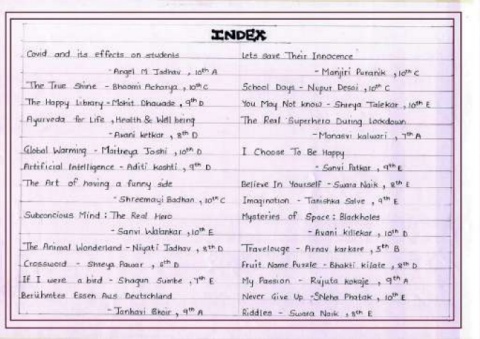 INDEX
Covid and its effects on students
- Angel M Jadhav, 10th A
The True Shine - Bhoomi Acharya, 10th C
The Happy Library - Mohit Dhawade, 9th D
Ayurveda for Life, Health & Well being
- Avani Ketkar, 8th D
Global Warming - Maitreya Joshi, 10th D
Artificial Intelligence - Aditi Koshti, 9th D
The Art of having a funny side
- Shreemayi Badhan, 10th C
Subconcious Mind : The Real Hero
- Sanvi Walankar, 10th E
The Animal Wonderland - Niyati Jadhav, 8th D
Crossword - Shreya Pawar, 8th D
If I were a bird - Shagun Sumbe, 7th E
Berühmtes Essen Aus Deutschland
- Janhavi Bhoir, 9th A
Lets save Their Innocence
- Manjiri Puranik, 10th C
School Days - Nupur Desai, 10th C
You May Not know - Sharya Talekar, 10th E
The Real Superhero During Lockdown
- Manasvi kalwari, 7th A
I Choose To Be Happy
- Sanvi Patkar, 9th E
Believe In Yourself - Swara Naik, 8th E
Imagination - Tanishka Salve, 9th E
Mysteries of Space : Blackholes
- Avani killekar, 10th D
Travelouge - Arnav karkare, 5th B
Fruit Name Puzzle - Bhakti Kilate, 8th D
My Passion - Rajuta kokaje, 9th A
Never Give Up - SNeha Phatak, 10th E
Riddles - Swara Naik, 8th E